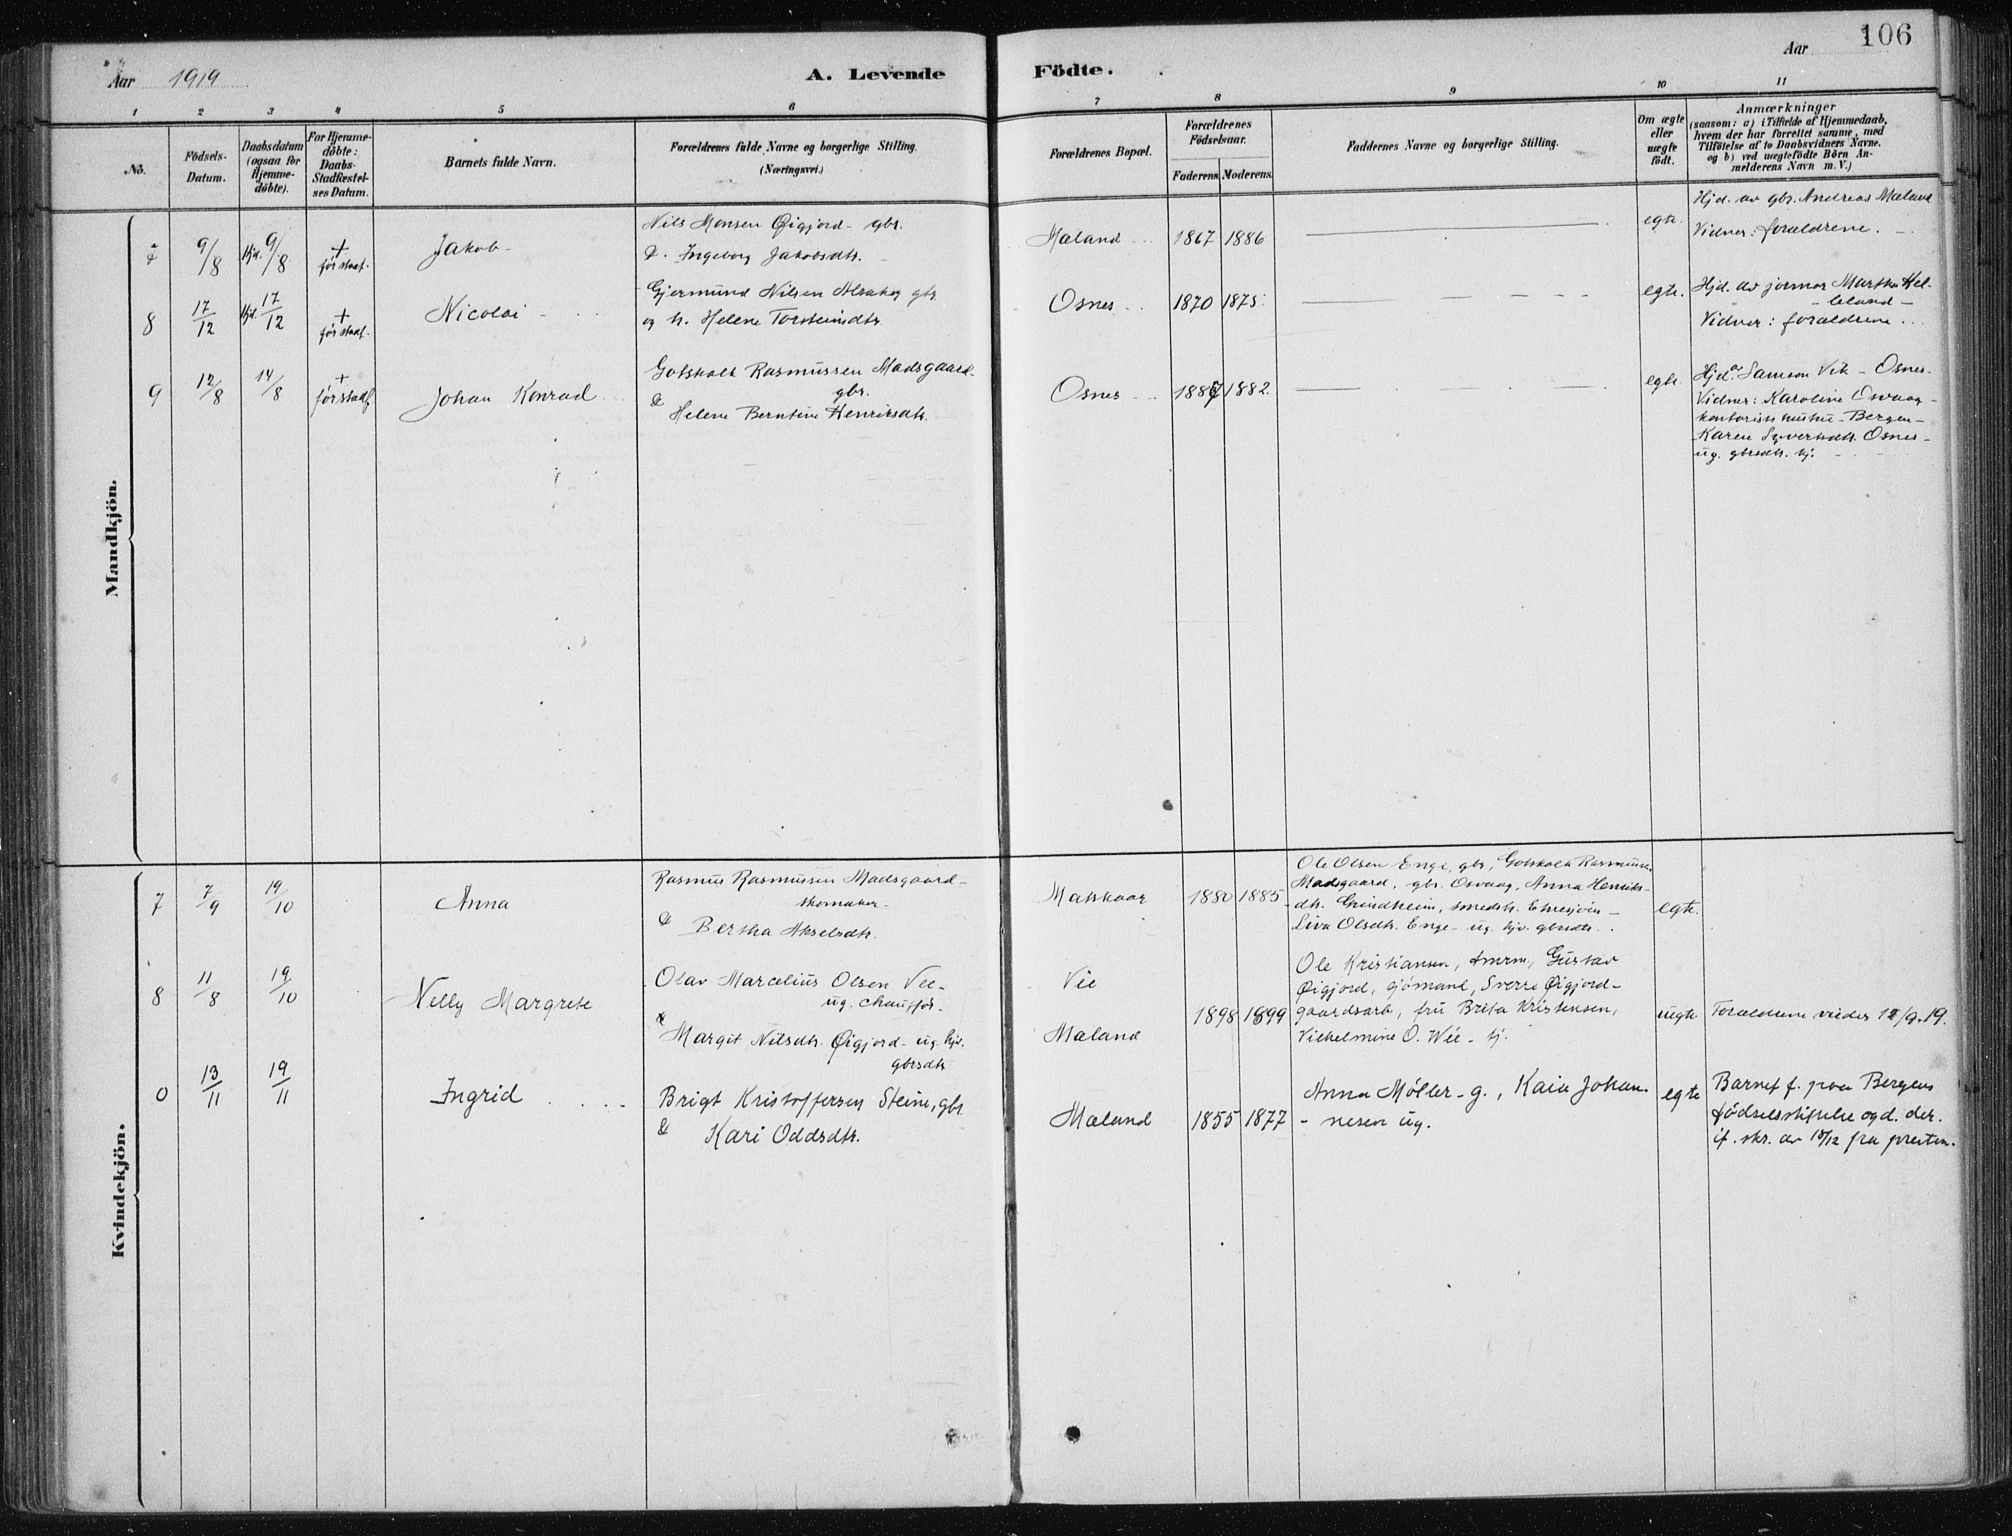 106
Aar 1919
A. Levende
Födte.
Aar
1 2 3 4 5 6 7 8 9 10 11
No.
Födsels-
Datum.
Daabsdatum
(ogsaa for
Hjemme-
döbte).
For Hjemme-
döbte:
Daabs-
Stadfæstel-
ses Datum.
Barnets fulde Navn.
Forældrenes fulde Navne og borgerlige Stilling.
(Næringsvei.)
Forældrenes Bopæl.
Forældrenes
Födselsaar.
Faderens. Moderens.
Faddernes Navne og borgerlige Stilling.
Om ægte
eller
uægte
födt.
Anmærkninger
(saasom: a) i Tilfælde af Hjemmedaab,
hvem der har forrettet samme, med
Tilföielse af to Daabsvidners Navne.
og b) ved uægtefödte Börn An-
melderens Navn m. V.)
Mandkjön.
7 9/8 Hjd. 9/8 + før staf. Jakob
Nils Monsen Øigjord - gbr.
& Ingeborg Jakobsdtr.
Mæland 1867 1886 egte.
Hjd. av gbr. Andreas Mæland
Vidner: forældrene.
8 17/12 Hjd. 17/12 + før staf. Nicolai
Gjermund Nilsen gbr.
og h. Helene Torsteinsdtr.
Osnes 1870 1875 egte.
Hjd. av jormor Martha Hel-
leland -
Vidner: forældrene
9 12/8 14/8 + før stadf. Johan Konrad
Gotskalk Rasmussen Madsgaard -
gbr.
& Helene Berntine Henriksdtr.
Osnes 1887 1882. egte.
Hjd. av Samson Vik - Osnes.
Vidner: Karoline Osvaag -
kontorists hustru - Bergen -
Karen Syvertsdtr. Osnes -
ug. gbrsdtr. hj.
Kvindekjön.
7 7/9 19/10 Anna
Rasmus Rasmussen Madsgaard -
skomaker -
& Bertha Akselsdtr.
Matskaar 1880 1885
Ole Olsen Enge, gbr, Gotskalk Rasmussen
Madsgaard, gbr. Osvaag, Anna Henriks-
dtr. Grindheim, smedstr. -
Liva Olsdtr. Enge - ug. hjv. gbrsdtr.
egte.
8 11/8 19/10 Nelly Margrete
Olav Marcelius Olsen Vie -
ug. chauffør.
& Margit Nilsdtr. Øigjord - ug. hjv.
gbrsdtr
Vie
Mæland
1898 1899
Ole Kristiansen, tmrm, Gustav
Øigjord, sjømand, Sverre Øigjord -
gaardsarb, fru Brita Kristensen,
Vilhelmine O. Wie - hj.
uegte Forældrene viedes 12/9.19.
0 13/11 19/11 Ingrid
Brigt Kristoffersen Steine, gbr
& Kari Oddsdtr.
Mæland 1855 1877
Anna Møller - g., Kaia Johan-
- nesen ug.
egte
Barnet f. paa Bergens
fødselsstiftelse og d. der.
if. skr. av 18/12 fra presten.